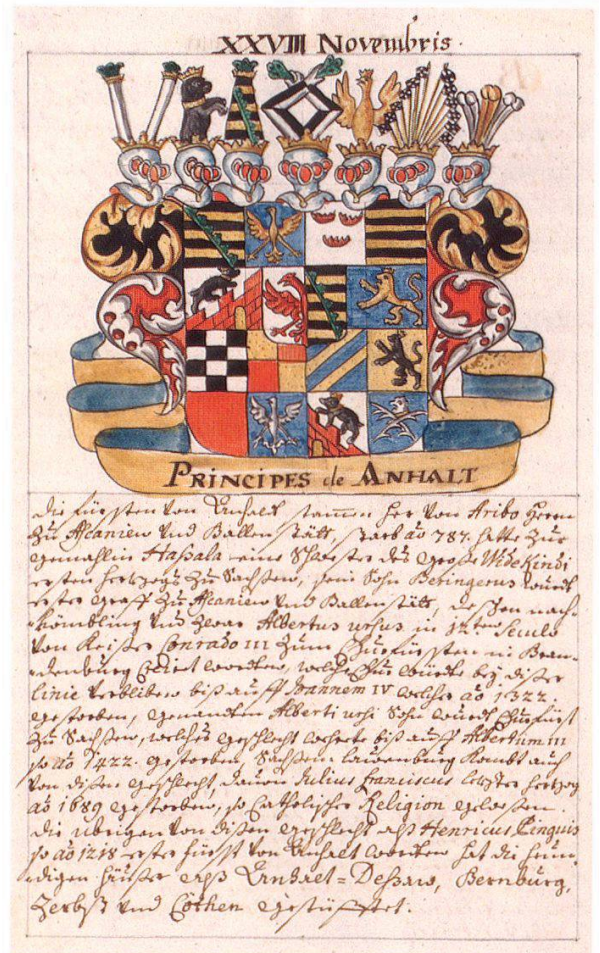 XXVIII Novembris.
PRINCIPES de ANHALT
die fürsten von Anhalt stammen her von Aribo Herrn
zu Ascanien und Ballenstätt, starb aõ 787. hatte zur
gemahlin Hassala eine Schwester des große Widekindi
ersten hertzogs zu Sachsen, sein Sohn Beringerus wurde
erster graff zu Ascanien und Ballenstätt, dessen nach-
kömbling und zwar Albertus ursus in 12ten Seculo
von Keiser Conrado III zum Churfürsten in Bran-
denburg worden, welche Chur würde bey diser
linie verbliben biß auff Joannem IV welcher aõ 1322.
gestorben, genandten Alberti ursi Sohn wurde Churfürst
zu Sachsen, welches geschlecht wehrete biß auff Albertum III
so aõ 1422. gestorben, Sachsen lauwenburg kombt auch
von disen geschlecht, davon Julius franciscus letzter hertzog
aõ 1689 gestorben, so Catholischer Religion gewesen.
die übrigen von disen geschlecht alß Henricus Pinguis
so aõ 1218 erster fürst von Anhalt worden hat die heun-
digen häußer alß Anhalt=Dessaw, Bernburg,
Zerbst und Cöthen gestüfftet.